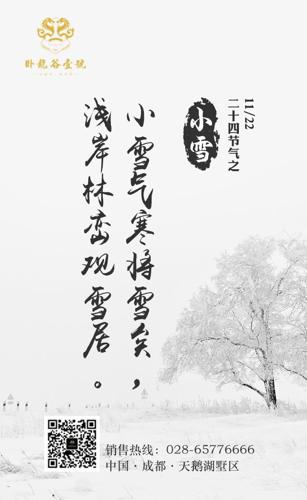 卧龍谷壹號
11/22
二十四节气之
小雪
小雪气寒将雪矣，
浅岸林峦观雪居。
销售热线：028-65776666
中国·成都·天鹅湖墅区